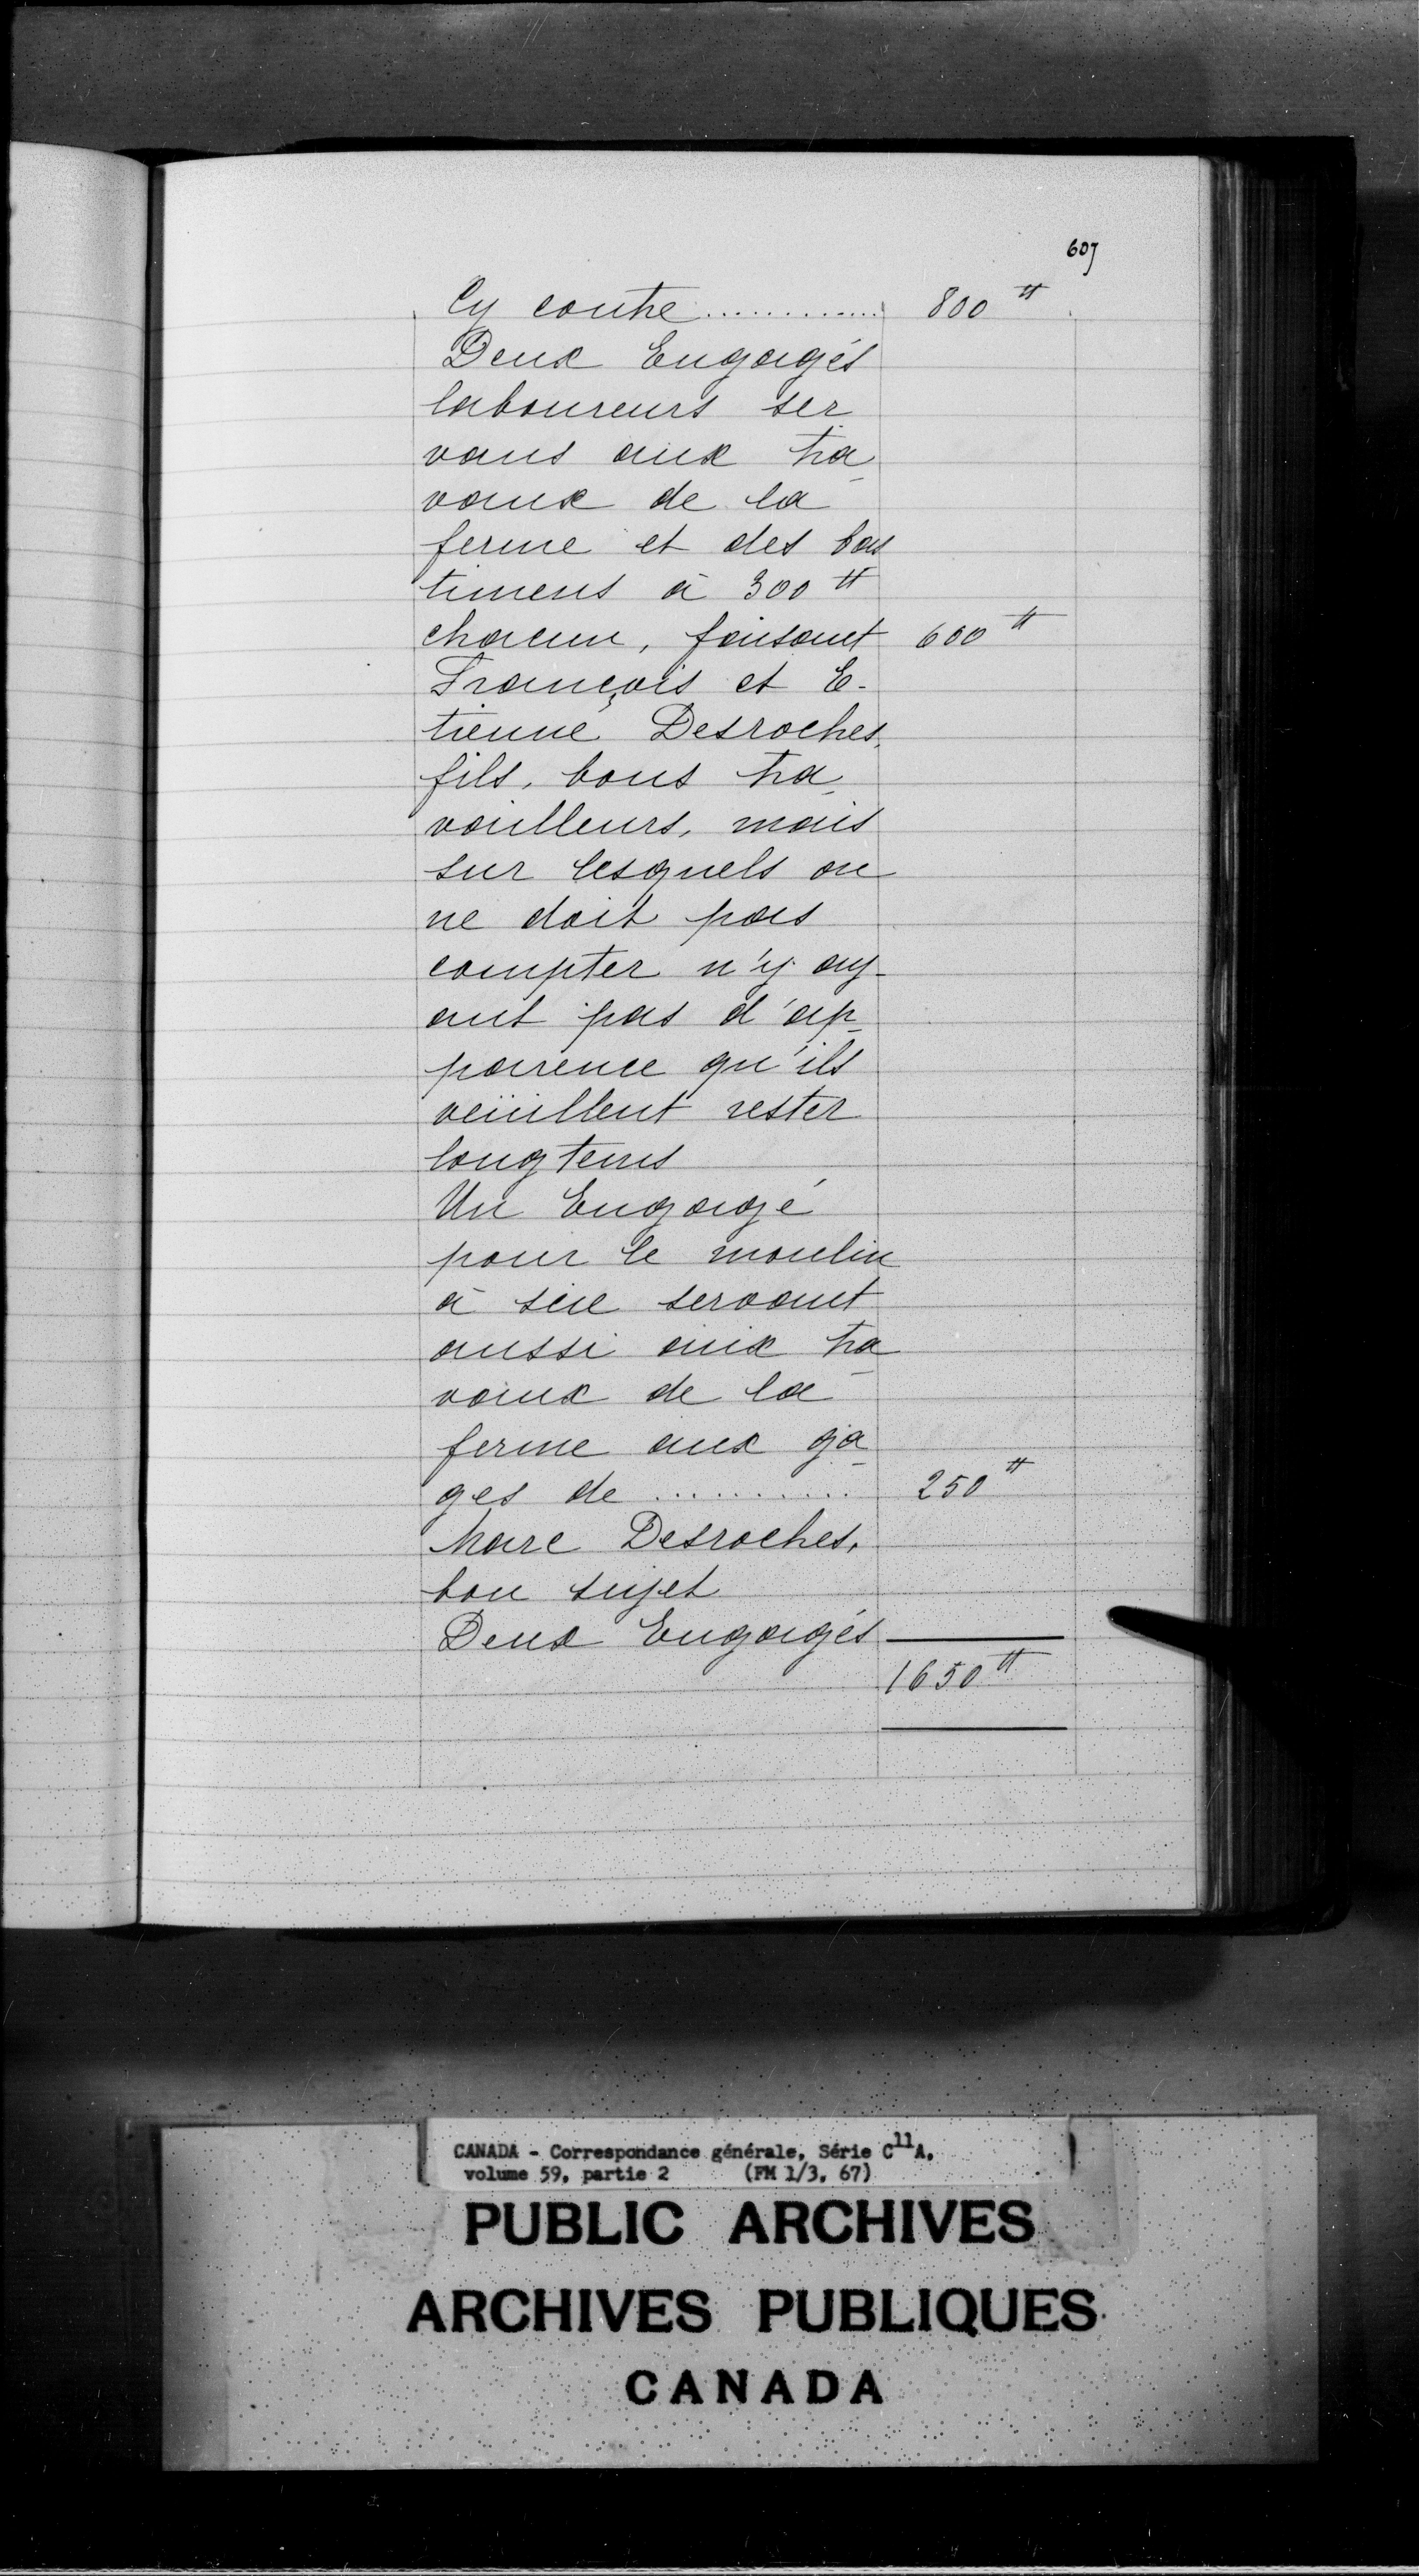 607
Cy contre ............ 800 ₶
Deux Engagés
laboureurs ser
vans aux tra
vaux de la
ferme et des bas
timens à 300 ₶
chacun, faisant 600 ₶
François et E-
tienne Desroches,
fils, bons tra
vailleurs, mais
sur lesquels on
ne doit pas
compter n'y ay-
ant pas d'ap
parence qu'ils
veüillent rester
longtems
Un Engagé
pour le moulin
à sçie servant
aussi aux tra
vaux de la
ferme aux ga
ges de .......... 250 ₶
Marc Desroches,
bon sujet
Deux Engagés
1650 ₶
CANADA - Correspondance générale, Série C11A,
volume 59, partie 2 (FM 1/3, 67)
PUBLIC ARCHIVES
ARCHIVES PUBLIQUES
CANADA